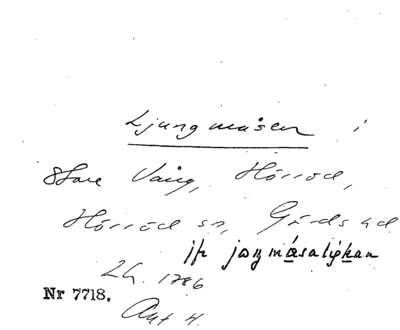 Ljungmåsen i
Stora Vång, Hörröd,
Hörröd sn, Gärds hd
jfr jåŋmåsaljykan
Lh. 1786
Nr 7718.
Aut H.